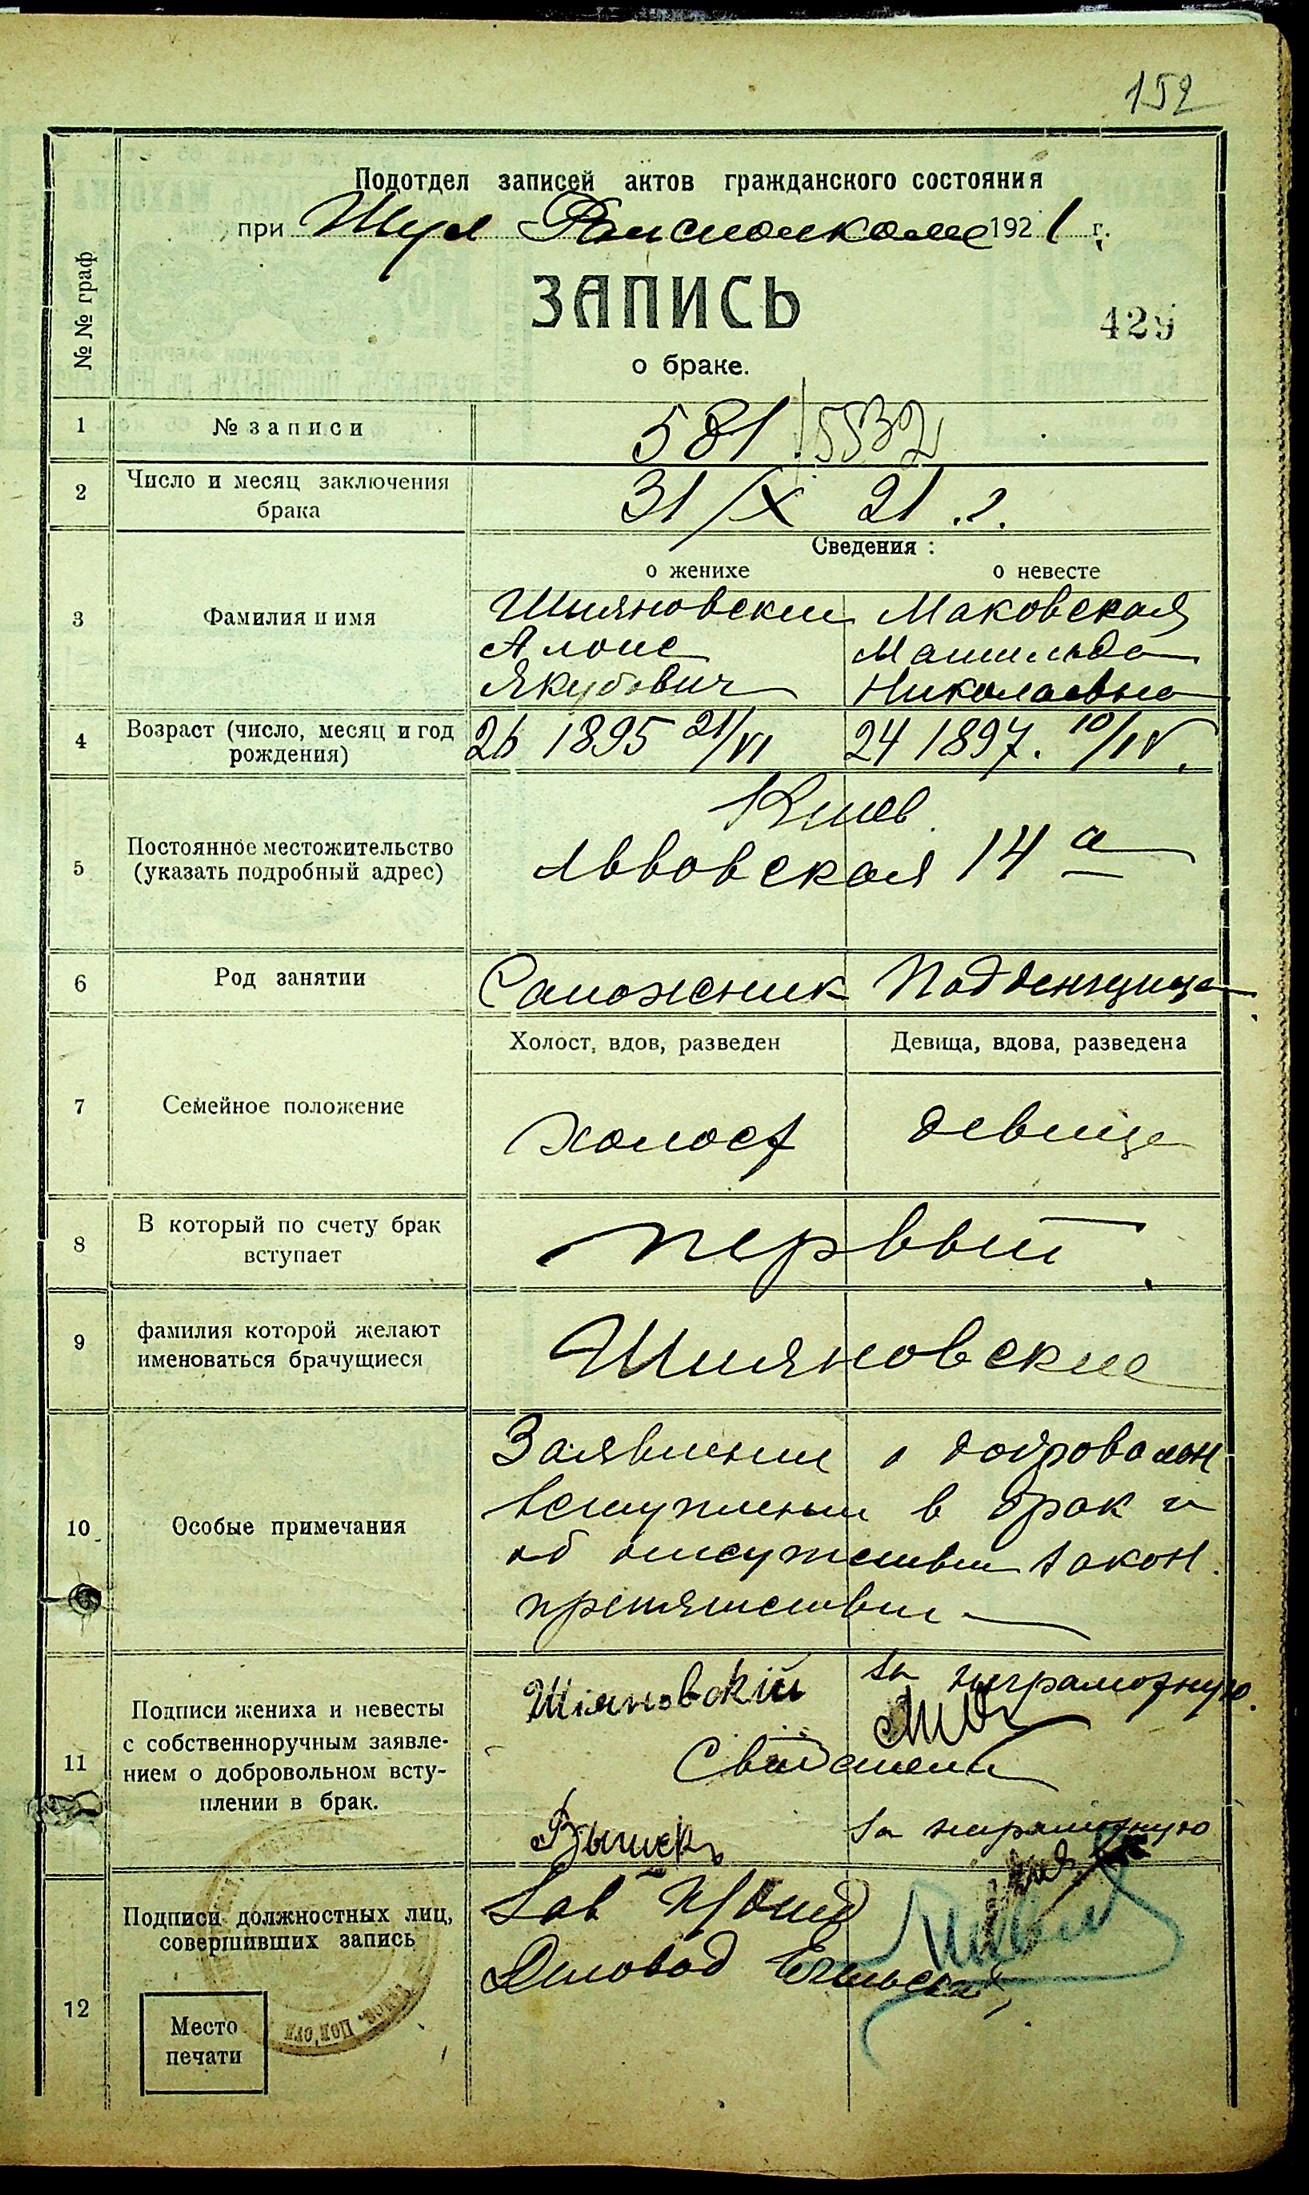 152
Подотдел записей актов гражданского состояния
при Шул Раисполкоме 1921 г.
№№ граф
ЗАПИСЬ
429
о браке.
1 № записи 581 5532
2 Число и месяц заключения брака 31/X 21 г.
Сведения :
о женихе о невесте
3 Фамилия и имя
Шияновский Маковская
Алоис Матильда
Якубович Николаевна
4 Возраст (число, месяц и год рождения) 26 1895 21/VI 24 1897. 10/IV.
Киев
5 Постоянное местожительство (указать подробный адрес) Львовская 14 а
6 Род занятии Сапожник Подденщица
Холост, вдов, разведен Девица, вдова, разведена
7 Семейное положение холост девица
8 В который по счету брак вступает первый
9 фамилия которой желают именоваться брачущиеся Шияновские
10 Особые примечания
Заявлении о добровольн
вступлении в брак и
об отсутствии закон.
препятствии
11 Подписи жениха и невесты с собственноручным заявлением о добровольном вступлении в брак.
Шіяновскій за неграмотную
Свидетели
за неграмотную
12 Подписи должностных лиц, совершивших запись
Зав
Деловод
Место
печати